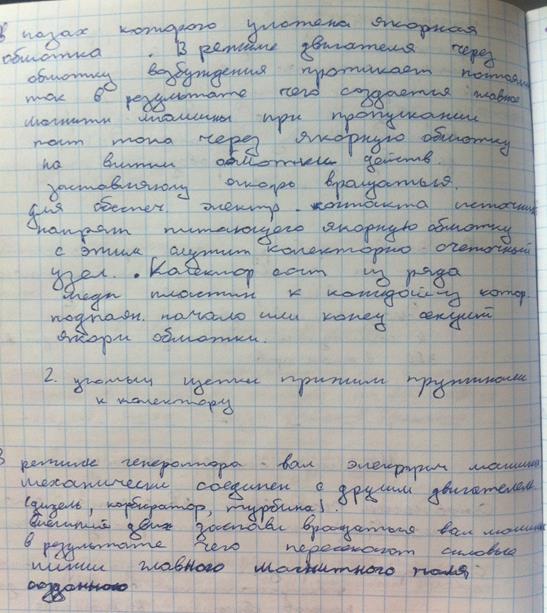 в пазах которого уложена якорная
обмотка . В режиме двигателя через
обмотку возбуждения протикает постоян
ток в результате чего создается главное
магнитн машины при пропускании
пост тока через якорную обмотку
на витки обмотки действ.
заставляющ якорь вращаться.
для обеспеч. электр. контакта источник
напряж питающего якорную обмотку
с этим служит колекторно счеточный
узел. Калектор сост из ряда
медн пластин к каждой из котор.
подпаян. начало или конец секций
якорн обмотки.
2. угольн щетки прижим пружинами
к колектору
В режиме генератора вал электрич машины
механически соединен с другим двигателем
(дизель, карбиратор, турбина).
внешний двиг застави вращаться вал машины
в результате чего пересекают силовые
линии главного магнитного поля